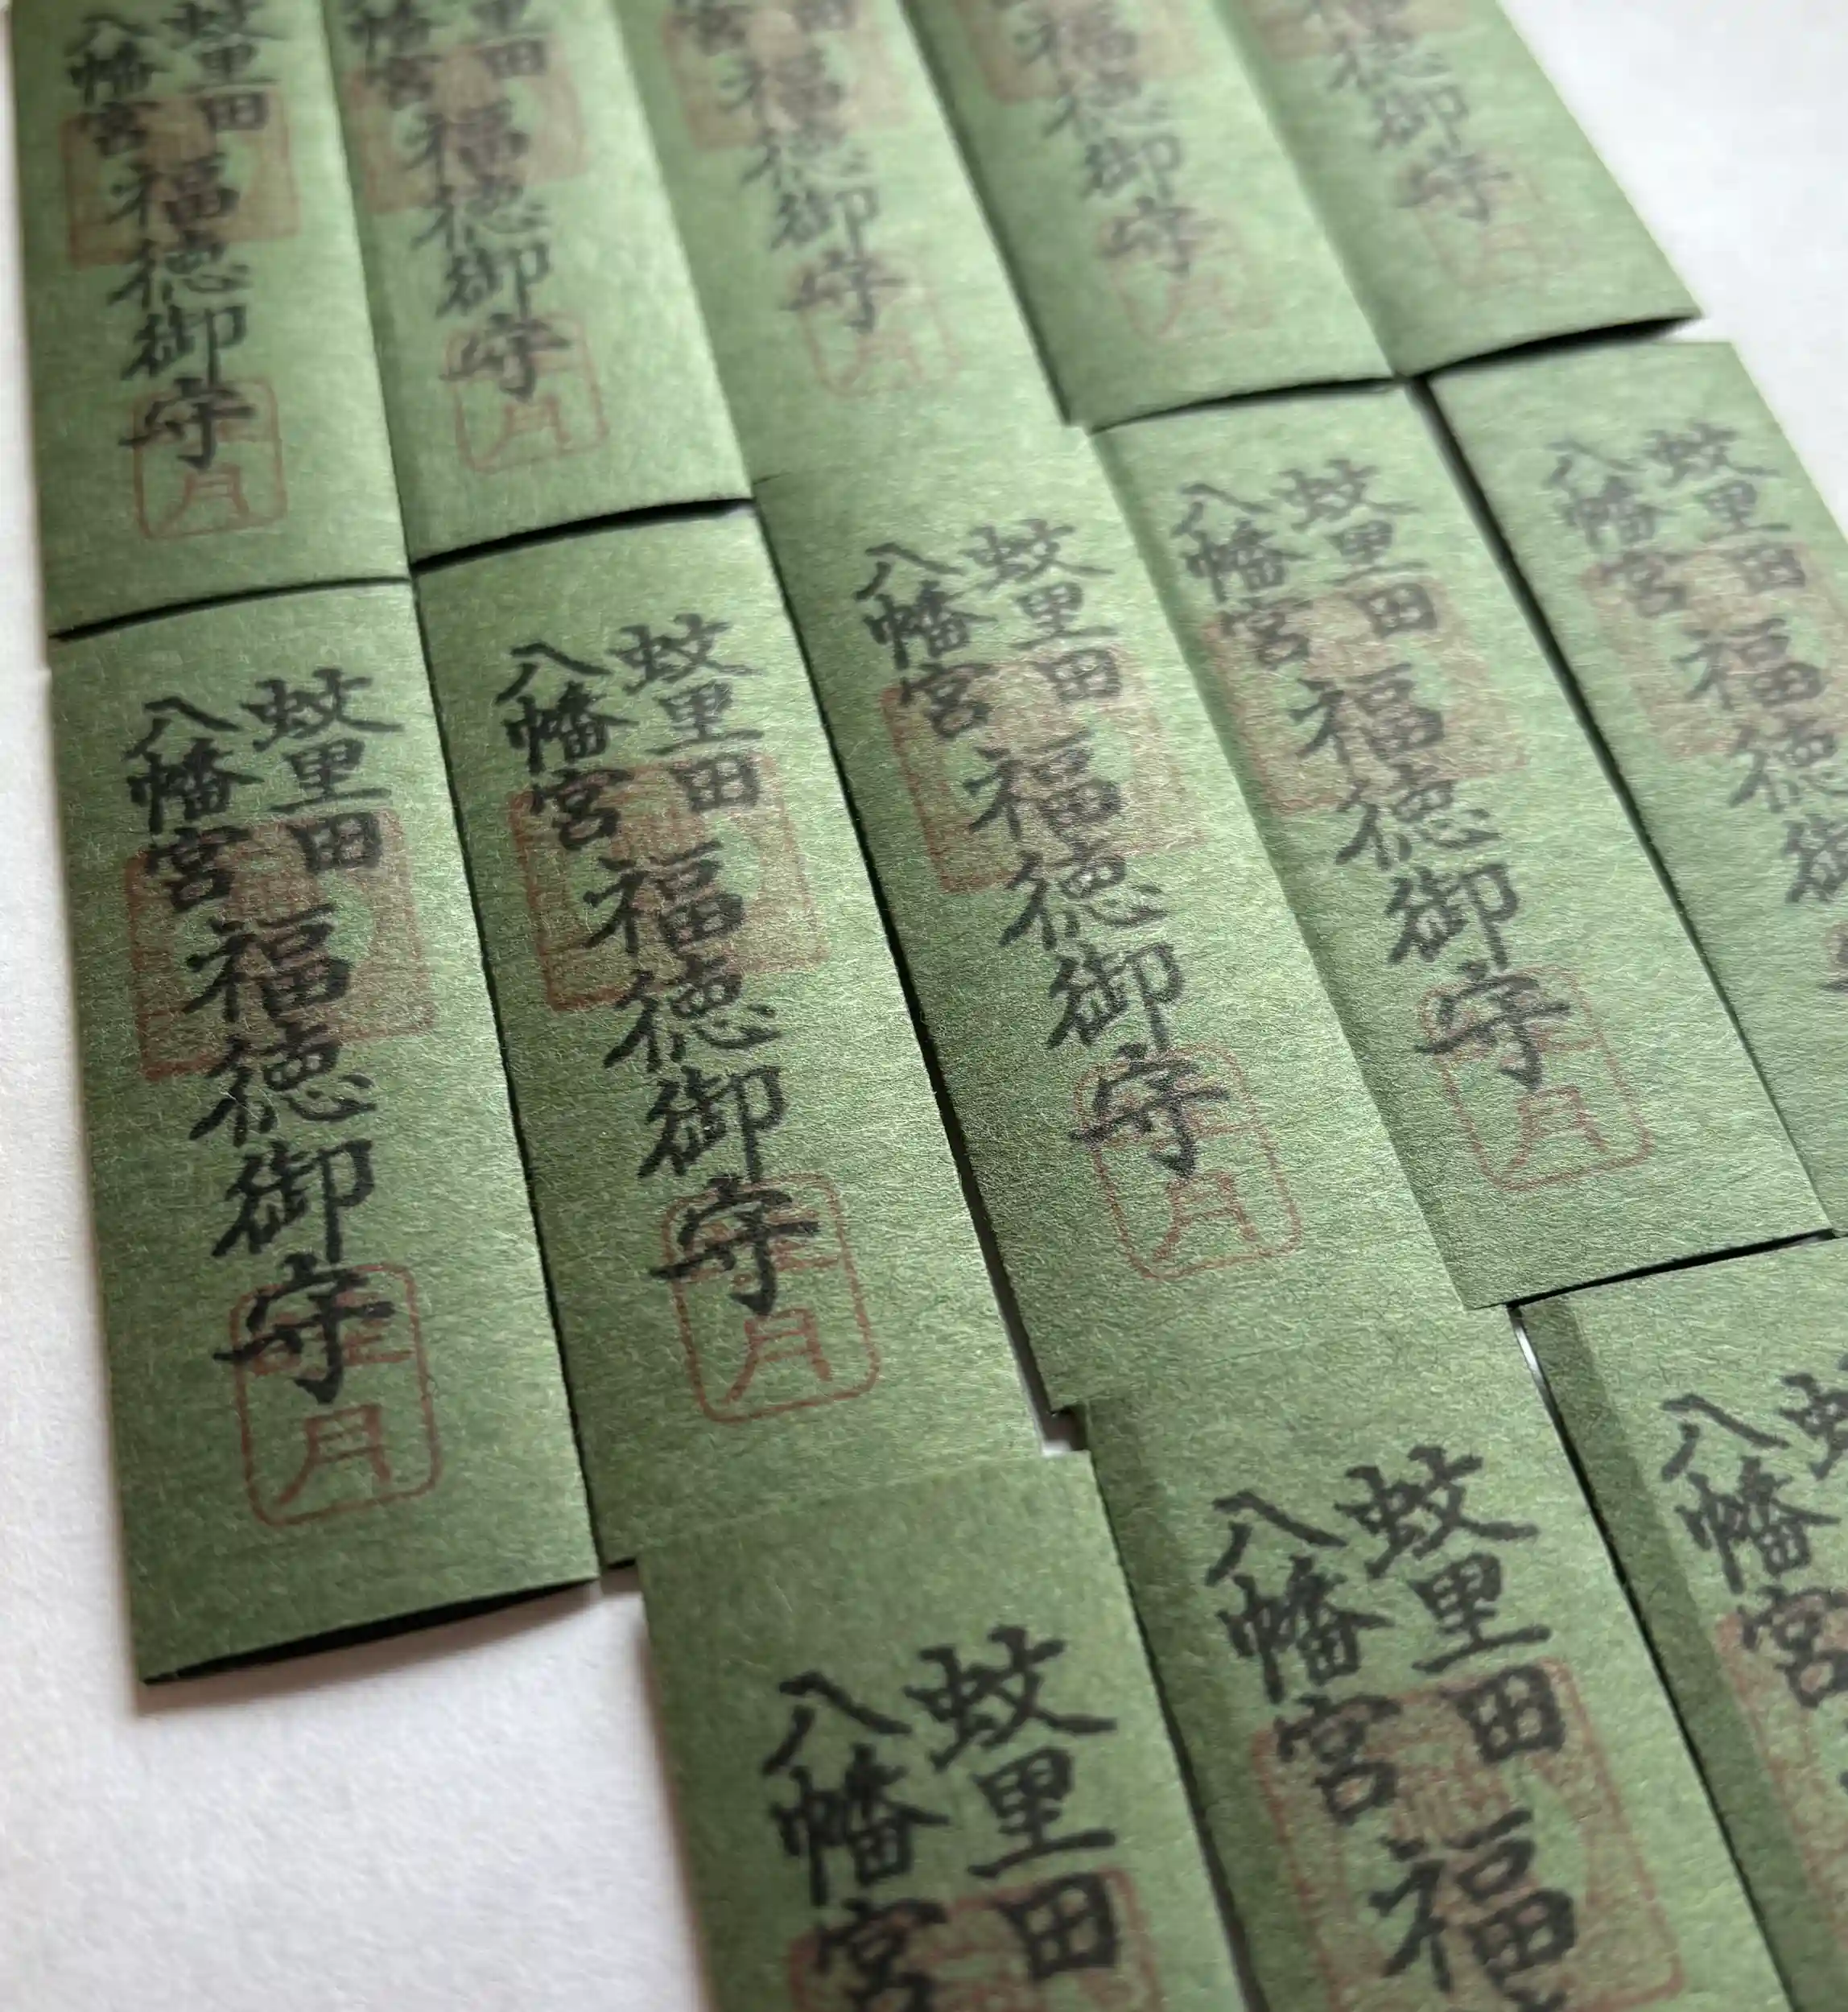 蚊里田
八幡宮
福徳御守
月
里田
幡宮
福徳御守
月
田
宮
福徳御守
月
福徳御守
月
徳御守
月
蚊里田
八幡宮
福徳御守
月
蚊里田
八幡宮
福徳御守
月
蚊里田
八幡宮
福徳御守
月
蚊里田
八幡宮
福徳御守
月
蚊里田
八幡宮
福徳御
蚊里田
八幡宮
蚊里田
八幡宮
福
八幡宮